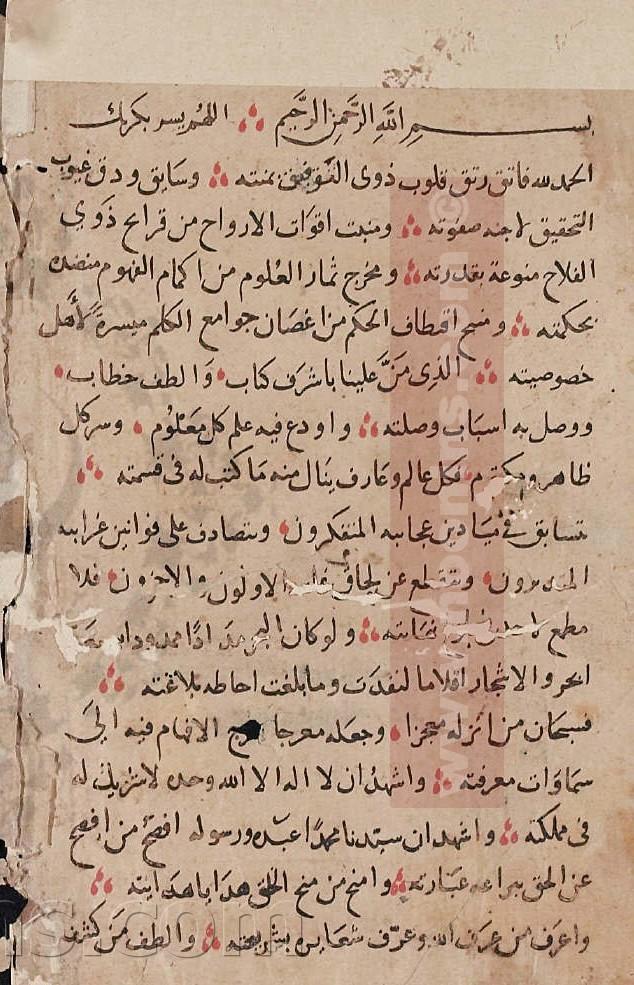 بسم الله الرحمن الرحيم اللهم يسر بكرمك
الحمد لله فاتق رتق قلوب ذوى التوفيق بمنته وسابق ودق غيوب
التحقيق لاجنه صفوته ومنبت اقوات الارواح من قرايح ذوي
الفلاح منوعة بقدرته ومخرج ثمار العلوم من اكمام الفهوم منضده
بحكمته ومنح اقتطاف الحكم من اغصان جوامع الكلم ميسرة لاهل
خصوصيته الذى من علينا باشرف كتاب والطف خطاب
ووصل به اسباب وصلته واودع فيه علم كل معلوم وسر كل
ظاهر ومكتوم فكل عالم وعارف ينال منه ما كتب له فى قسمته
تتسابق في ميادين عجايبه المتفكرون وتتصادف على قوانين غرايبه
المتدبرون وتنقطع عن الاولون والاخرون فلا
مطمع لاحد نهايته ولو كان البحر مدادا ممدودا
ابحر والاشجار اقلاما لنفدت وما بلغت احاطه بلاغته
فسبحان من انزله معجزا وجعله معرجا الافهام فيه الى
سماوات معرفته واشهد ان لا اله الا الله وحده لا شريك له
فى مملكته واشهد ان سيدنا محمدا عبده ورسوله افصح من افصح
عن الحق ببراعه عبارته وامنح من منح الخلق هدايا هدايته
واعرف من عرف الله وعرف شعايره بشريعته والطف من كشف
www.
ns.com